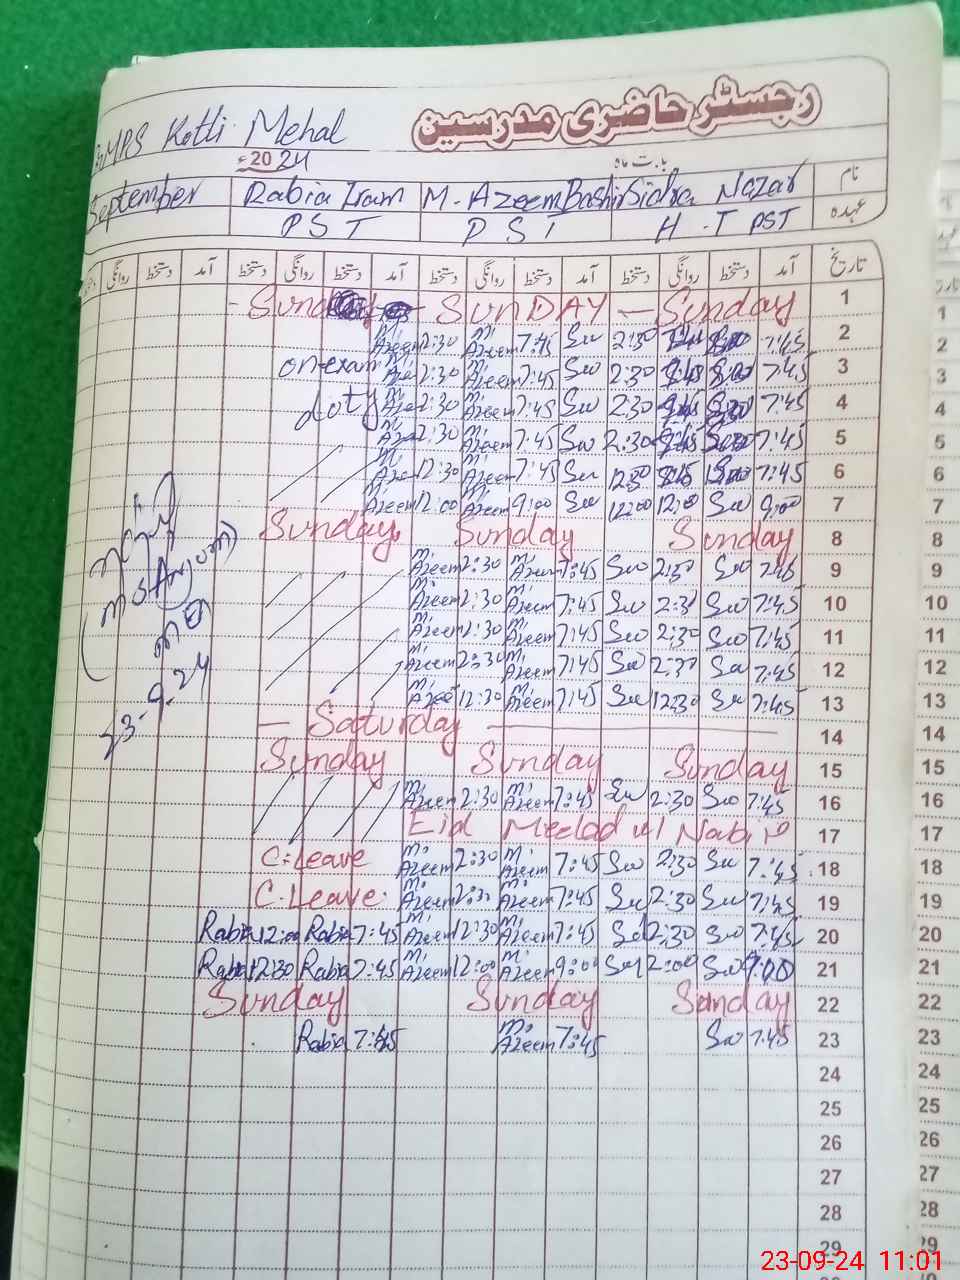 رجسٹر حاضری مدرسین
MPS Kotli Mehal
بابت ماہ 2024ء
نام Sidra Nazar M. Azeem Bashir Rabia Iram September
عہدہ H.T PST PST PST
تاریخ آمد دستخط روانگی دستخط آمد دستخط روانگی دستخط آمد دستخط روانگی دستخط آمد دستخط روانگی
1 Sunday — SUNDAY —
2 7:45 2:30 Suu 7:45 M. Azeem 2:30 M. Azeem
3 7:45 2:30 Suu 7:45 Azeem 2:30 on exam
4 7:45 2:30 Suu 7:45 Azeem 2:30 duty
5 7:45 2:30 Suu 7:45 Azeem 2:30
6 7:45 12:30 Suu 7:45 Azeem 12:30
7 9:00 Suu 12:00 12:00 Suu 9:00 Azeem 12:00 Azeem
8 Sunday Sunday Sunday
9 7:45 Suu 2:30 Suu 7:45 M. Azeem 2:30 M. Azeem
10 7:45 Suu 2:30 Suu 7:45 M. Azeem 2:30 M. Azeem
11 7:45 Suu 2:30 Suu 7:45 M. Azeem 2:30 M. Azeem
12 7:45 Suu 2:30 Suu 7:45 M. Azeem 2:30 M. Azeem
13 7:45 Suu 12:30 Suu 7:45 M. Azeem 12:30 M. Azeem
14 — Saturday —
15 Sunday Sunday Sunday
16 7:45 Suu 2:30 Suu 7:45 M. Azeem 2:30 M. Azeem
17 Eid Meelad ul Nabi
18 7:45 Suu 2:30 Suu 7:45 M. Azeem 2:30 M. Azeem C.Leave
19 7:45 Suu 2:30 Suu 7:45 M. Azeem 2:30 M. Azeem C.Leave
20 7:45 Suu 12:30 Suu 7:45 M. Azeem 12:30 M. Azeem 7:45 Rabia 12:00 Rabia
21 9:00 Suu 12:00 Suu 9:00 M. Azeem 12:00 M. Azeem 7:45 Rabia 12:30 Rabia
22 Sunday Sunday Sunday
23 7:45 Suu 7:45 M. Azeem 7:45 Rabia
24
25
26
27
28
29
23-9-24
23-09-24 11:01